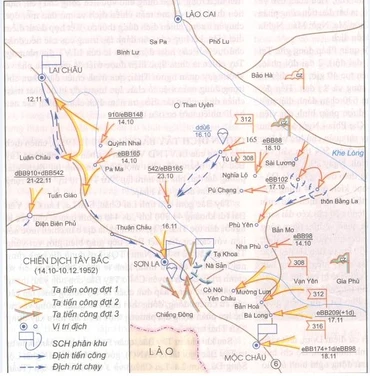 LÀO CAI
Sa Pa
Phố Lu
Bình Lư
LAI CHÂU
Bảo Hà
Than Uyên
12.11
910/eBB148
14.10
312
165
ddù6
16.10
Quỳnh Nhai
eBB165
14.10
Pa Ma
Luân Châu
eBB88
18.10
Tú Lệ
308
Sài Lương
Khe Lóng
Nghĩa Lộ
eBB102
17.10
542/eBB165
23.10
dBB910+dBB542
21-22.11
Tuần Giáo
Pú Chạng
thôn Bằng La
Điện Biên Phủ
Phù Yên
Bản Mo
Thuận Châu
16.11
eBB98
14.10
Nha Phù
Tạ Khoa
SƠN LA
Nà Sản
308
Gia Phù
Vạn Yên
Cò Nòi
Yên Châu
Mường Lụm
312
Chiềng Đông
Bản Hoả
Ba Long
eBB209(+1d)
17.11
316
LÀO
MỘC CHÂU
eBB174+1d/eBB98
18.11
6
CHIẾN DỊCH TÂY BẮC
(14.10-10.12.1952)
Ta tiến công đợt 1
Ta tiến công đợt 2
Ta tiến công đợt 3
Vị trí địch
SCH phân khu
Địch tiến công
Địch rút chạy